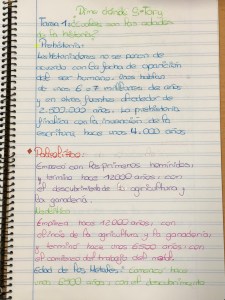 ¿Dime dónde estoy?
Tema 1: ¿Cuáles son las edades
de la historia?
Prehistoria:
Los historiadores no se ponen de
acuerdo con la fecha de aparición
del ser humano. Nos hablan
de unos 6 o 7 millones de años
y en otras fuentes alrededor de
2.500.000 años. La prehistoria
finaliza con la invención de la
escritura, hace unos 4.000 años
Paleolítico:
Empezó con los primeros homínidos,
y termina hace 12000 años con
el descubrimiento de la agricultura y
la ganadería.
Neolítico:
Empieza hace 12.000 años, con
el inicio de la agricultura y la ganadería,
y terminó hace unos 6500 años, con
el comienzo del trabajo del metal.
Edad de los Metales: Comenzó hace
unos 6500 años, con el descubrimiento